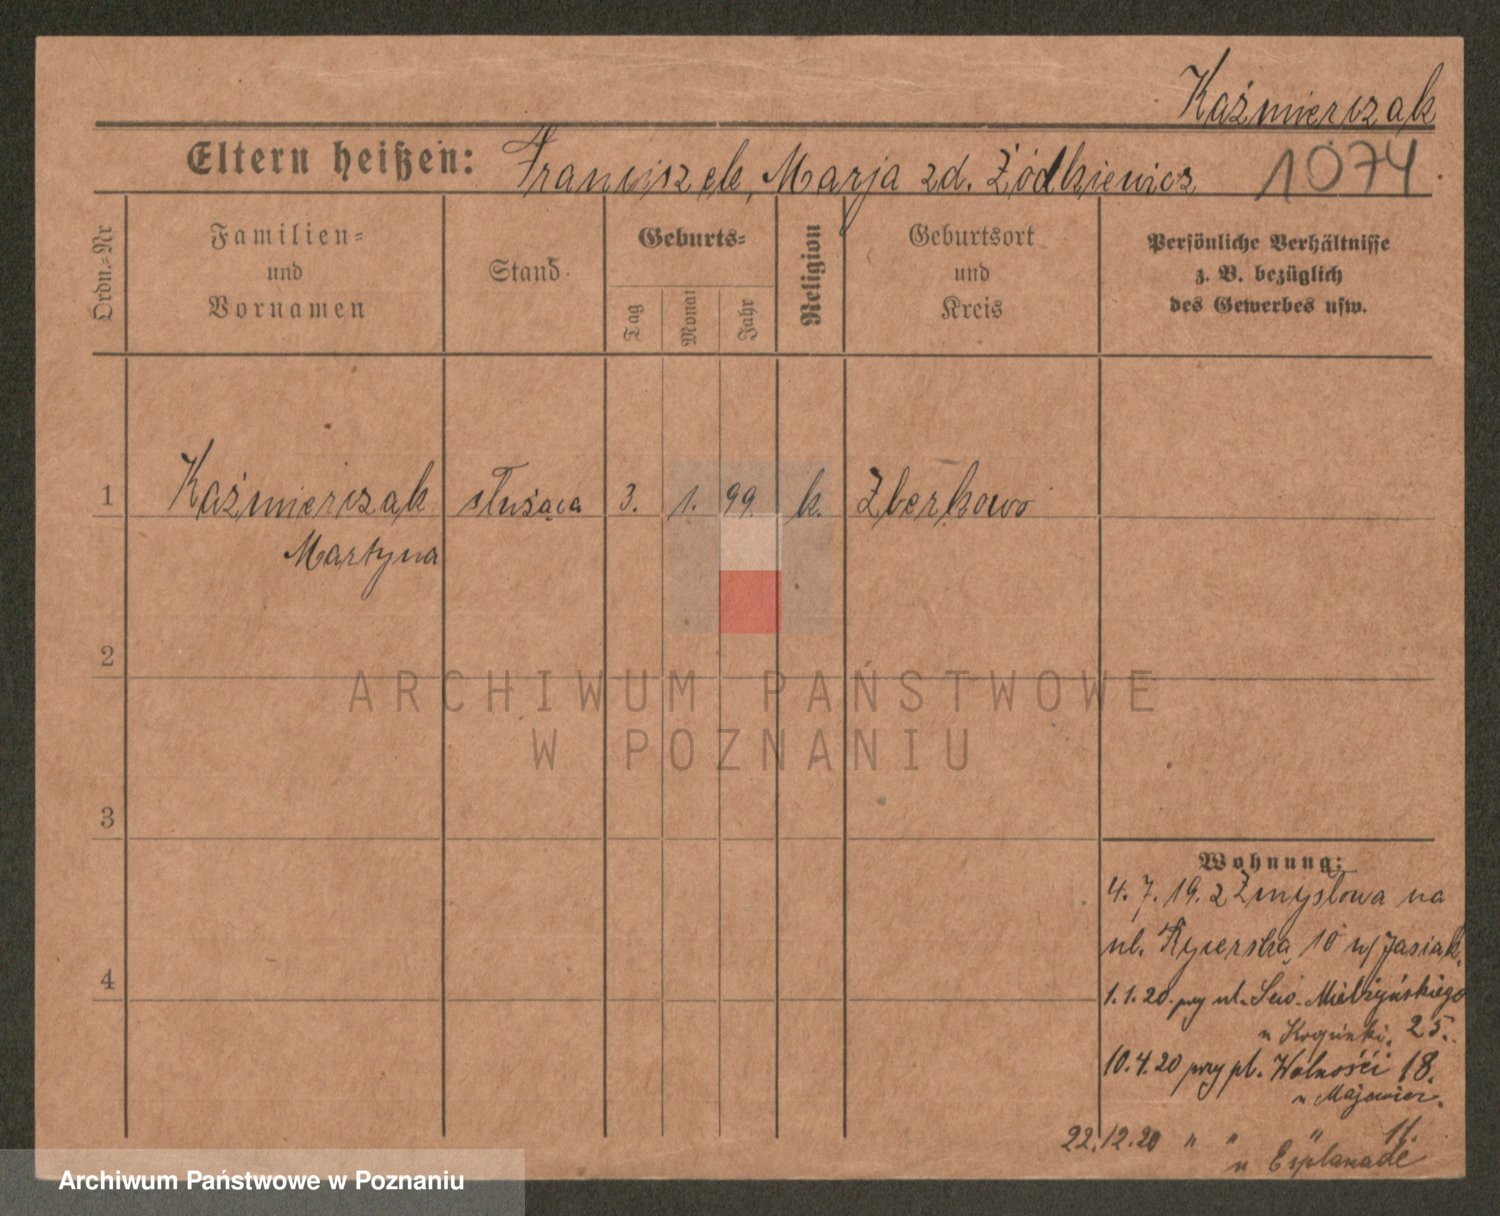 Kaźmierczak
Eltern heißen: Franciszek, Marja zd. Żódkiewicz 1074.
Ordn.=Nr
Familien=
und
Vornamen
Stand
Geburts=
Tag
Monat
Jahr
Religion
Geburtsort
und
Kreis
Persönliche Verhältnisse
z. B. bezüglich
des Gewerbes usw.
1 Kaźmierczak służąca 3. 1. 99. k. Zberkowo
Martyna
2
ARCHIWUM PAŃSTWOWE
W POZNANIU
3
Wohnung:
4. 7. 19. z Zmysłowa na
ul. Rycerską 10 u/ Jasiak.
4
1.1.20. przy ul. Sew. Mielżyńskiego
u 25.
10.4.20 przy pl. Wolności 18.
u Majewicz.
22.12.20 " " " 17.
u Esplanade
Archiwum Państwowe w Poznaniu